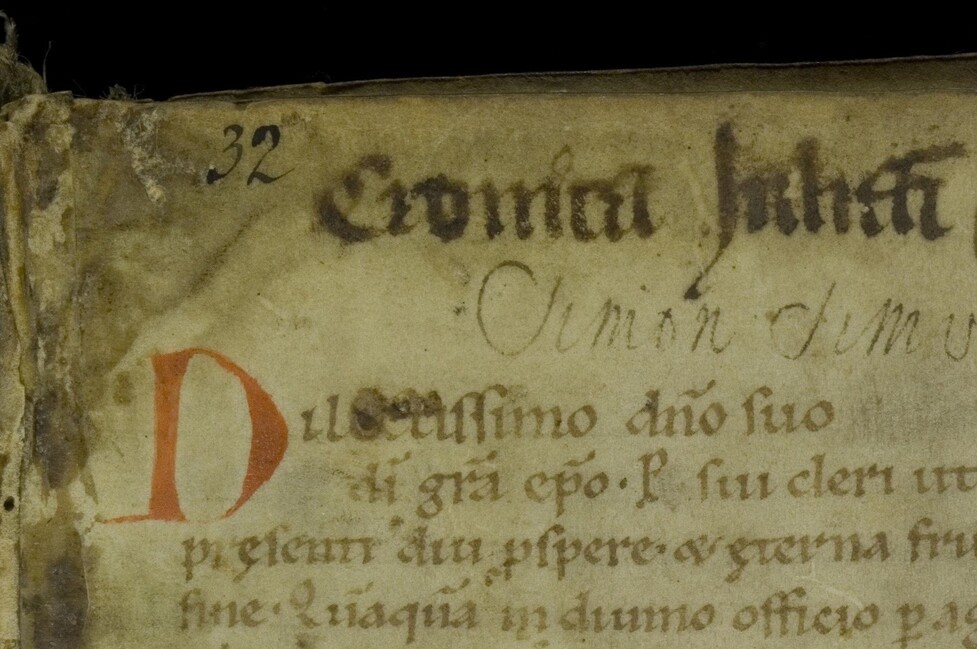 32
Cronica
Simon Simo
Dilectissimo dn̄o suo
di̅ gr̄a ep̄o · P sui cleri ut
pręsenti diu ꝓspere · & ęterna fru
fine · Quāquā in diuino officio ꝑag